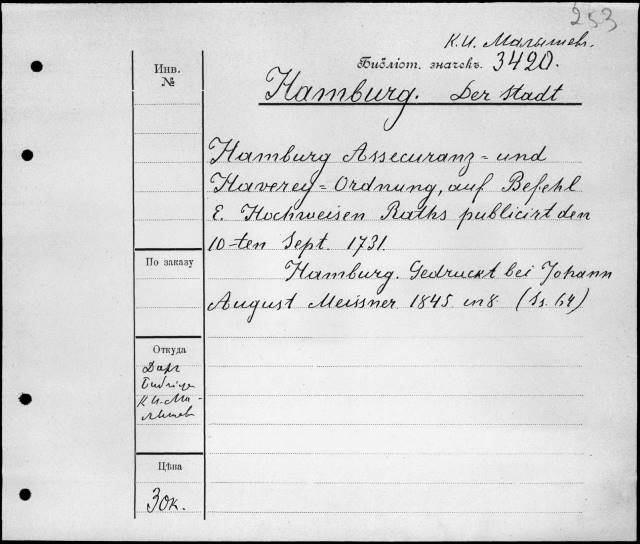 253
К.И. Малышев.
Библіот. значекъ. 3420.
Hamburg. Der Stadt
Инв.
№
Hamburg Assecuranz= und
Haverey=Ordnung, auf Befehl
E. Hochweisen Raths publicirt den
10-ten Sept. 1731.
По заказу
Hamburg. Gedruckt bei Johann
August Meissner 1845 in 8 (Ss. 64)
Откуда
Даръ
К.И. Ма-
лышев
Цѣна
30к.